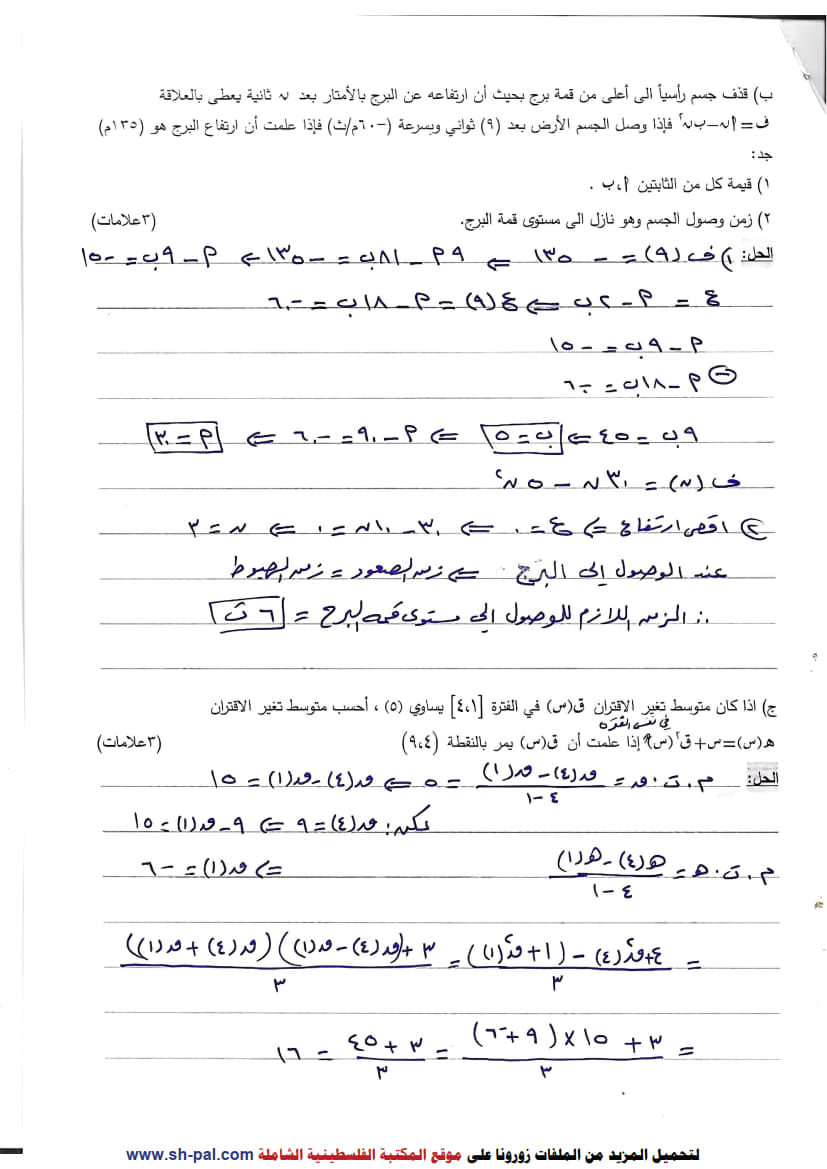 ب) قذف جسم رأسياً الى أعلى من قمة برج بحيث أن ارتفاعه عن البرج بالأمتار بعد ن ثانية يعطى بالعلاقة
ف = أن – ب ن² فإذا وصل الجسم الأرض بعد (٩) ثواني وبسرعة (-٦٠م/ث) فإذا علمت أن ارتفاع البرج هو (١٣٥م)
جد:
١) قيمة كل من الثابتين أ ، ب .
٢) زمن وصول الجسم وهو نازل الى مستوى قمة البرج. (٣علامات)
الحل: ١) ف(٩) = -١٣٥ ⇐ ٩م - ٨١ب = -١٣٥ ⇐ م - ٩ب = -١٥
ع = م - ٢ب ⇐ ع(٩) = م - ١٨ب = -٦٠
م - ٩ب = -١٥
⊖ م - ١٨ب = -٦٠
٩ب = ٤٥ ⇐ ب = ٥ ⇐ م - ٩٠ = -٦٠ ⇐ م = ٣٠
ف(ن) = ٣٠ن - ٥ن²
٢) اقصى ارتفاع ⇐ ع = ٠ ⇐ ٣٠ - ١٠ن = ٠ ⇐ ن = ٣
عند الوصول إلى البرج ⇐ زمن الصعود = زمن الهبوط
∴ الزمن اللازم للوصول إلى مستوى قمة البرج = ٦ ث
ج) اذا كان متوسط تغير الاقتران ق(س) في الفترة [٤،١] يساوي (٥) ، أحسب متوسط تغير الاقتران
في نفس الفترة
ه(س)=س+ق²(س) إذا علمت أن ق(س) يمر بالنقطة (٩،٤) (٣علامات)
الحل: م.ت.ق = ق(٤) - ق(١) / ٤ - ١ = ٥ ⇐ ق(٤) - ق(١) = ١٥
لكن: ق(٤) = ٩ ⇐ ٩ - ق(١) = ١٥
م.ت.ه = ه(٤) - ه(١) / ٤ - ١ ⇐ ق(١) = -٦
= ٤ + ق²(٤) - (١ + ق²(١)) / ٣ = ٣ + (ق(٤) - ق(١))(ق(٤) + ق(١)) / ٣
= ٣ + ١٥ × (٩ + -٦) / ٣ = ٣ + ٤٥ / ٣ = ١٦
لتحميل المزيد من الملفات زورونا على موقع المكتبة الفلسطينية الشاملة www.sh-pal.com